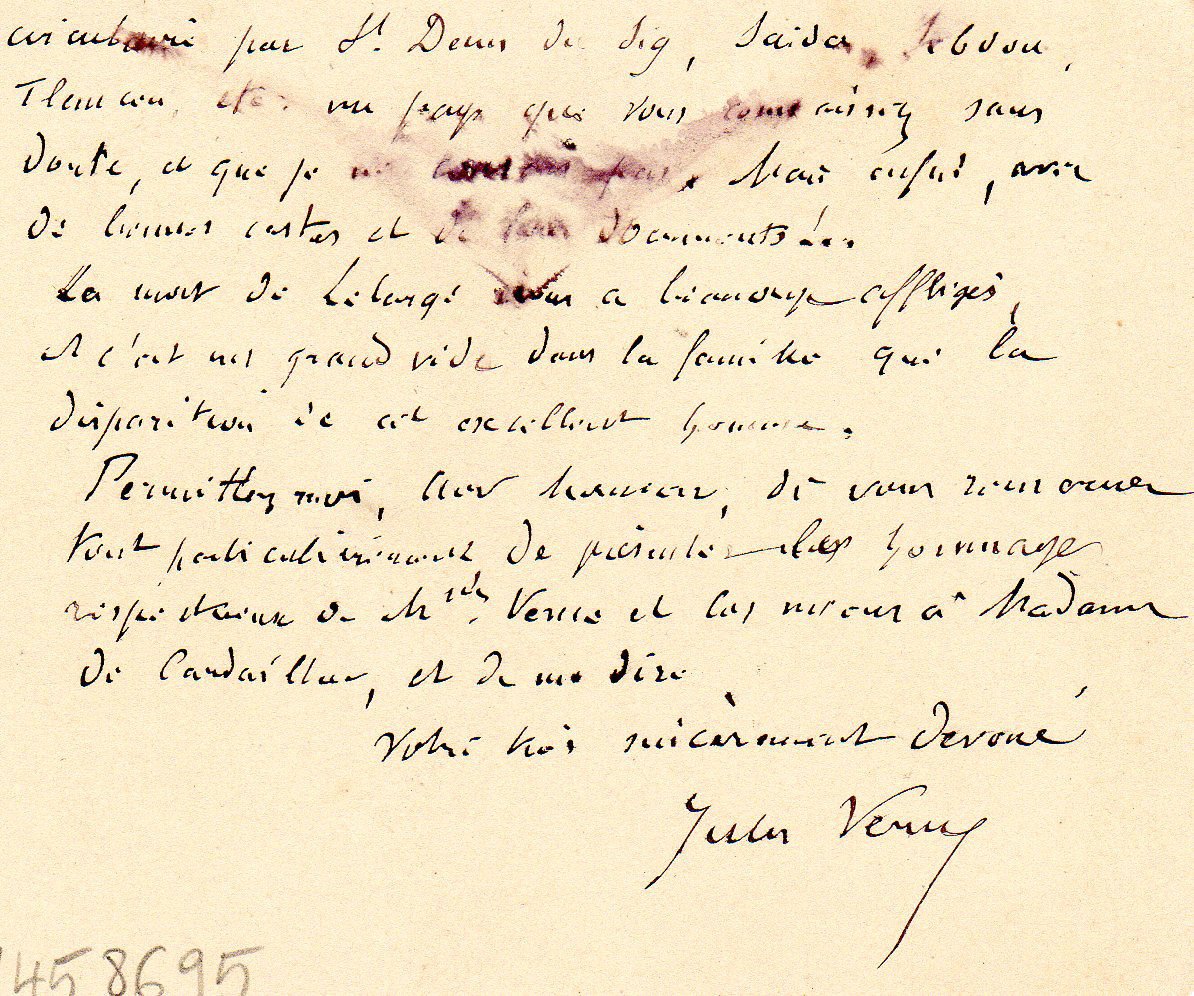 circulaire par St Denis du Sig, Saida, Sebdou,
Tlemcen, etc. un pays que vous connaissez sans
doute, et que je ne connais pas. Mais enfin, avec
de bonnes cartes et de bons documents!..
La mort de Lelarge nous a beaucoup affligés,
et c'est un grand vide dans la famille que la
disparition de cet excellent homme.
Permettez moi, cher Monsieur, de vous remercier
tout particulièrement de présenter les hommages
respectueux de Mme Verne et les miens à Madame
de Cardaillac, et de me dire
votre très sincèrement dévoué
Jules Verne
458695